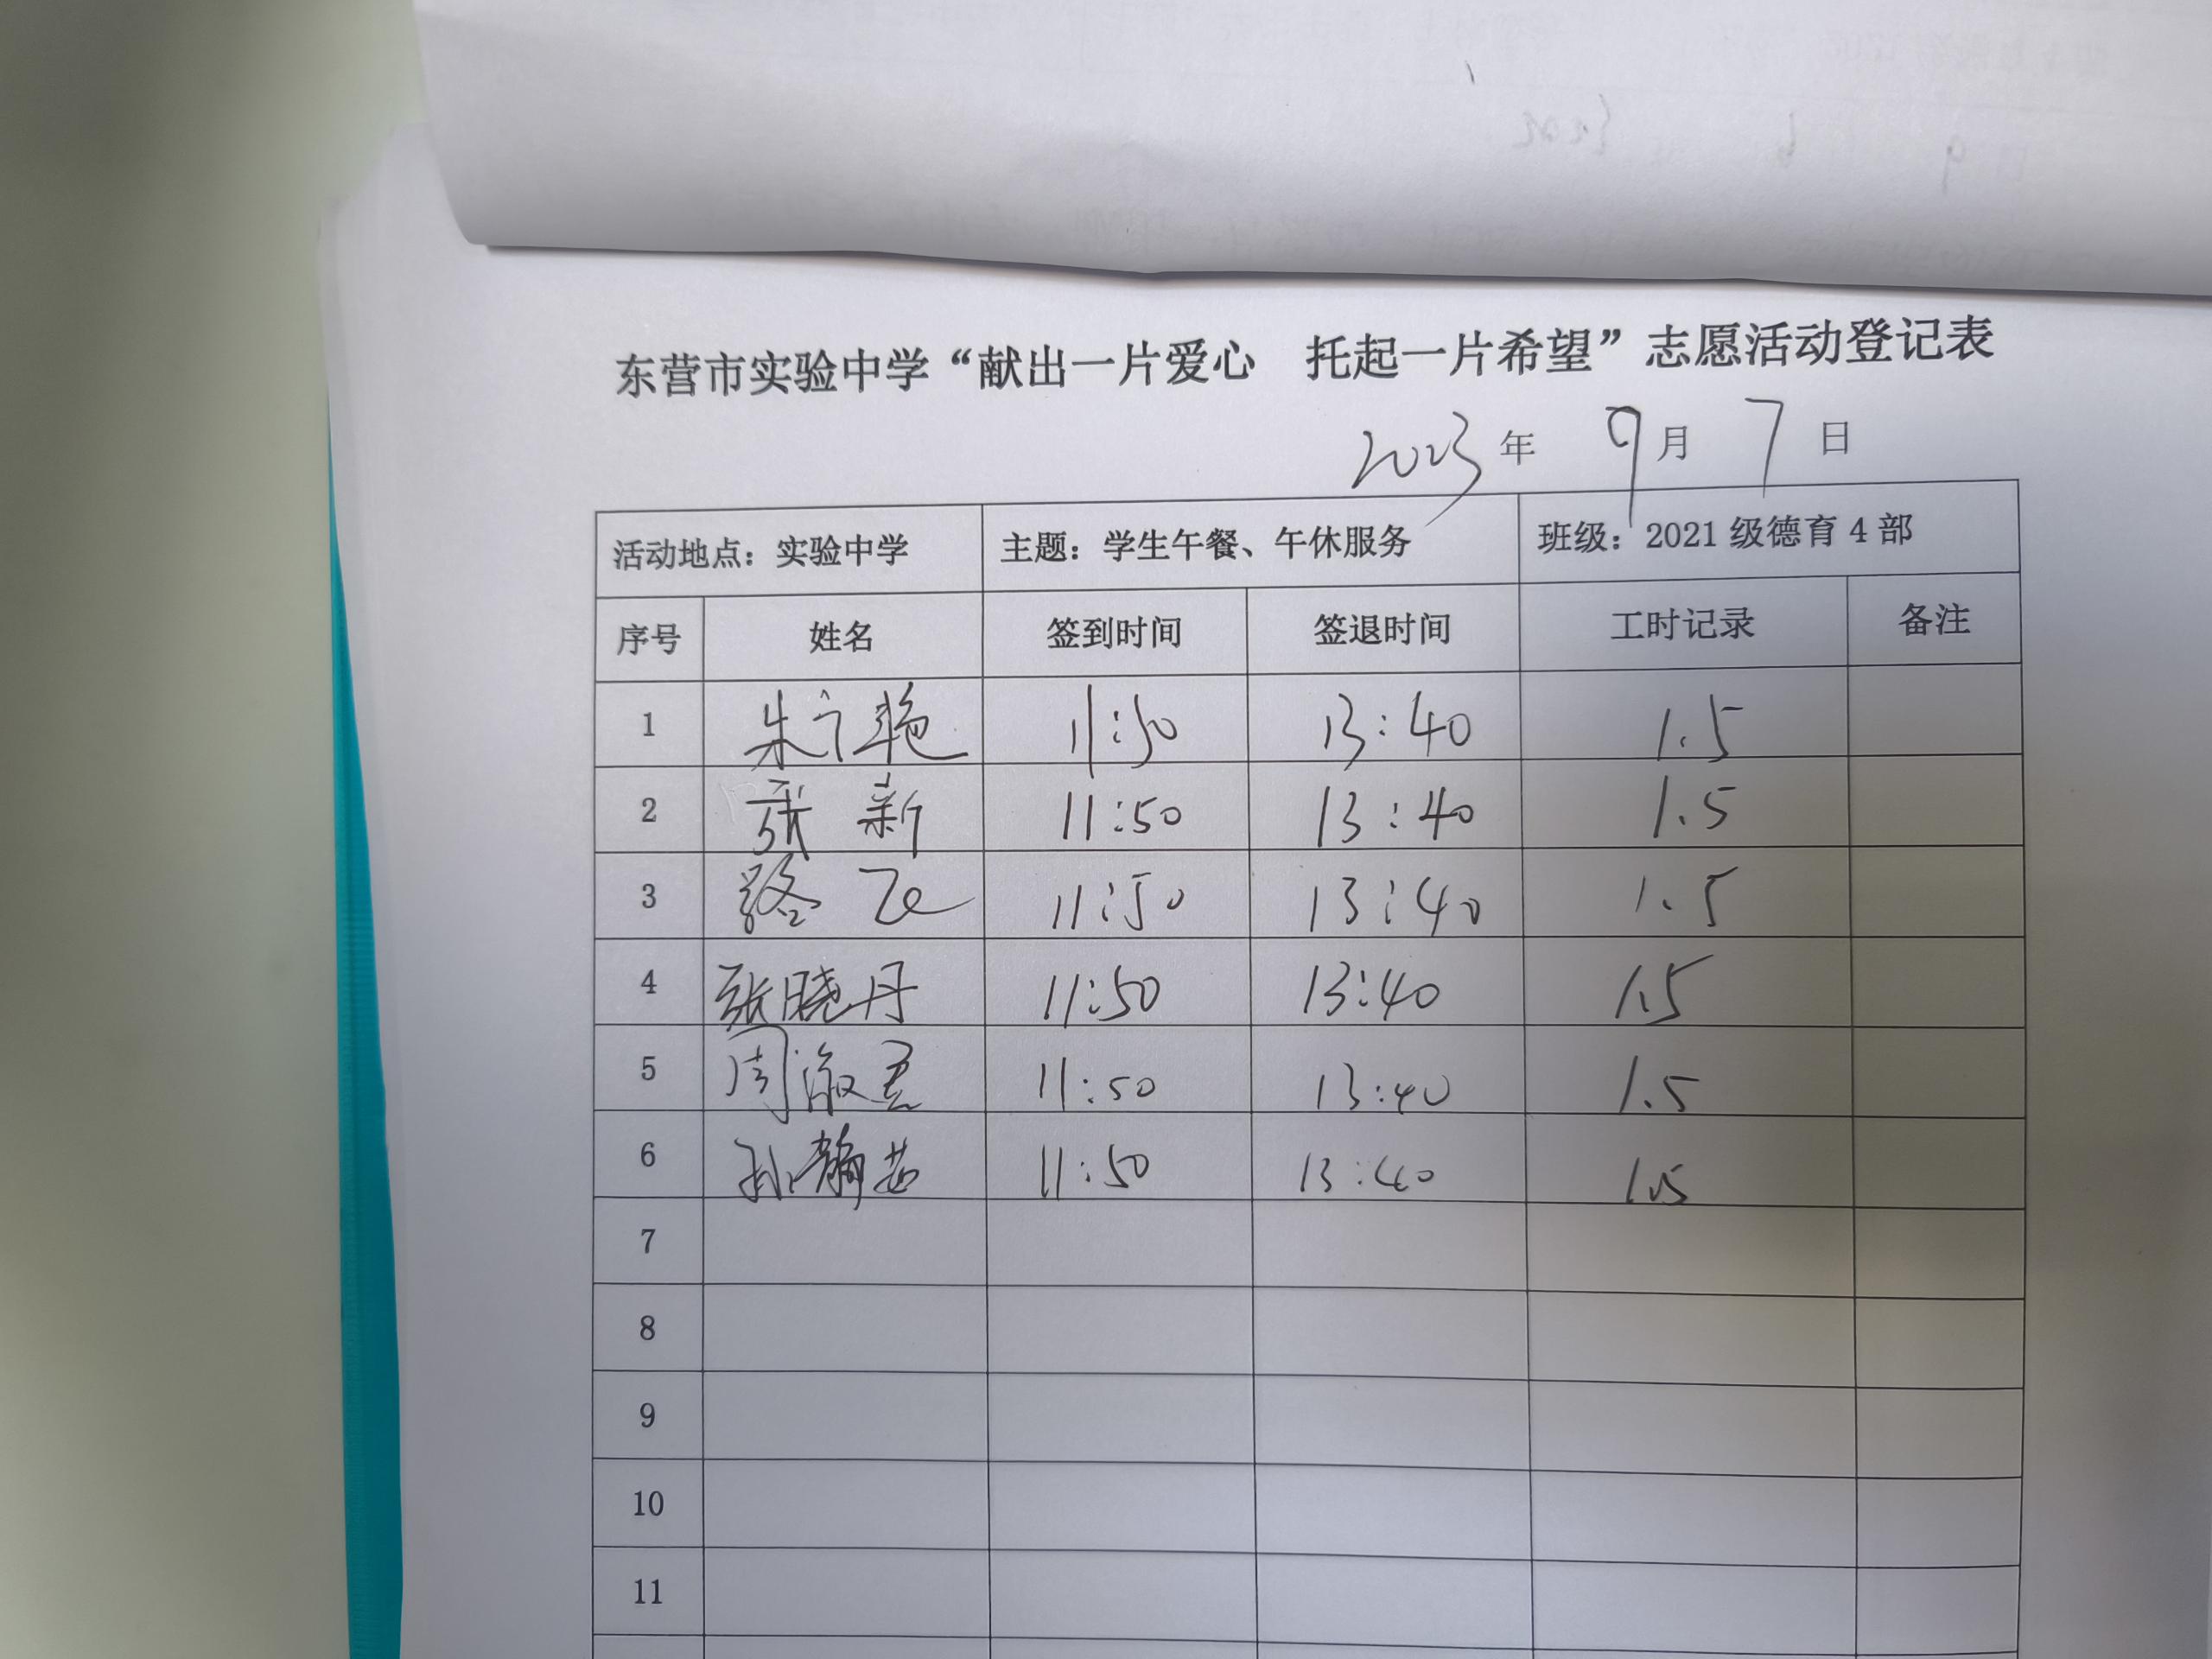 东营市实验中学“献出一片爱心 托起一片希望”志愿活动登记表
2023年 9月 7日
活动地点：实验中学 主题：学生午餐、午休服务 班级：2021级德育4部
序号 姓名 签到时间 签退时间 工时记录 备注
1 朱广艳 11:50 13:40 1.5
2 张新 11:50 13:40 1.5
3 路飞 11:50 13:40 1.5
4 张晓丹 11:50 13:40 1.5
5 周淑君 11:50 13:40 1.5
6 孙静 11:50 13:40 1.5
7
8
9
10
11